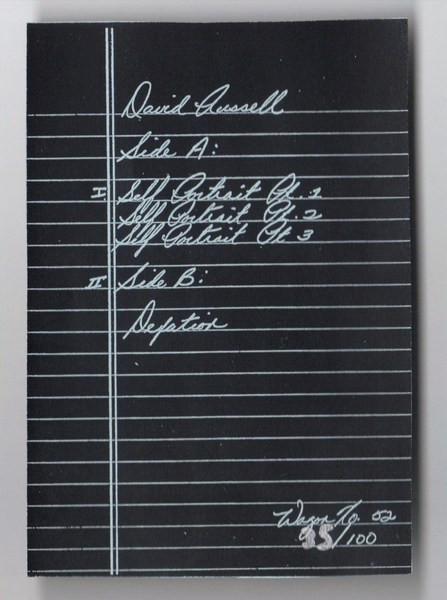 David Russell
Side A:
I Self Portrait Pt. 1
Self Portrait Pt. 2
Self Portrait Pt. 3
II Side B:
Wagon No. 52
35/100